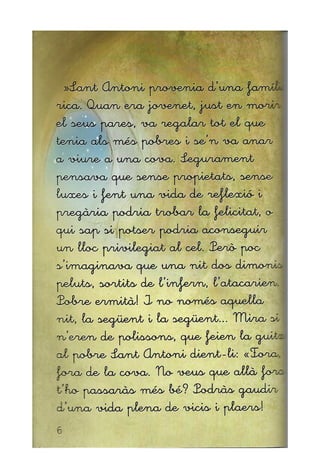 »Sant Antoni provenia d'una famíli
rica. Quan era jovenet, just en morir
el seus pares, va regalar tot el que
tenia als més pobres i se'n va anar
a viure a una cova. Segurament
pensava que sense propietats, sense
luxes i fent una vida de reflexió i
pregària podria trobar la felicitat, o
qui sap si potser podria aconseguir
un lloc privilegiat al cel. Però poc
s'imaginava que una nit dos dimonis
peluts, sortits de l'infern, l'atacarien.
Pobre ermità! I no només aquella
nit, la següent i la següent... Mira si
n'eren de polissons, que feien la guitz
al pobre Sant Antoni dient-li: «Fora,
fora de la cova. No veus que allà fora
t'ho passaràs més bé? Podràs gaudir
d'una vida plena de vicis i plaers!
6